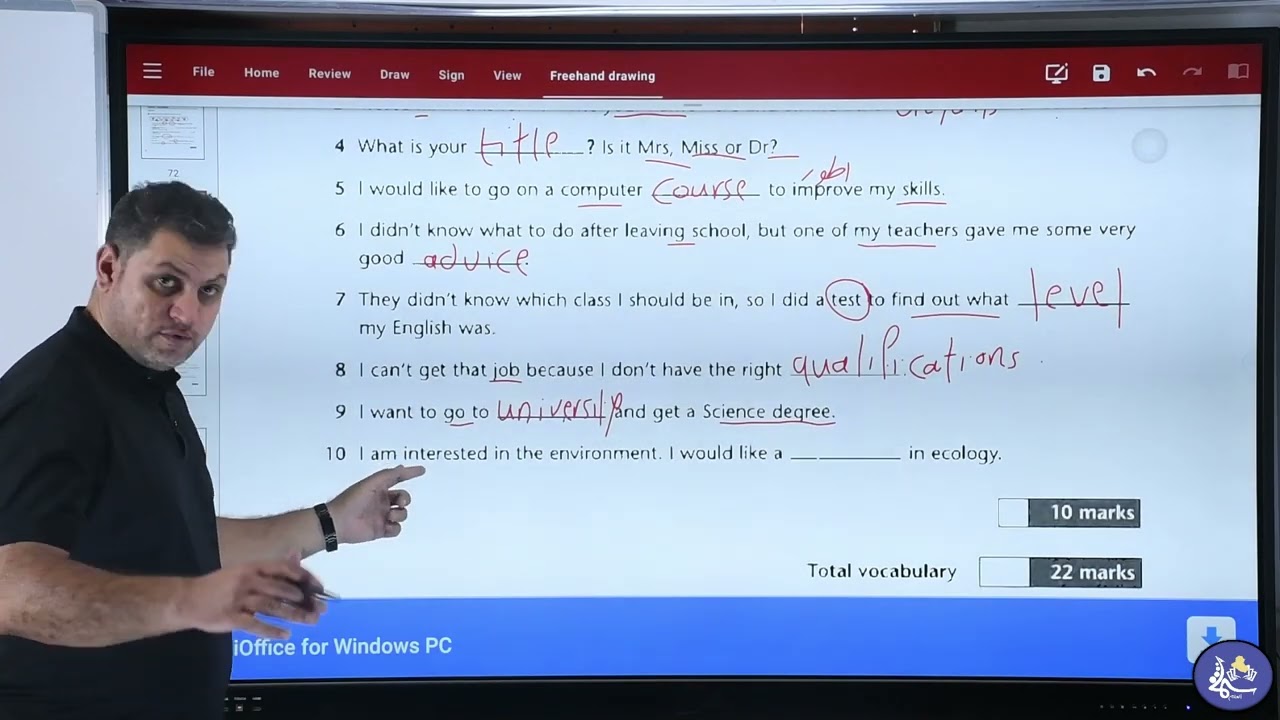 File Home Review Draw Sign View Freehand drawing
72
4 What is your title ? Is it Mrs, Miss or Dr?
5 I would like to go on a computer course to improve my skills.
6 I didn't know what to do after leaving school, but one of my teachers gave me some very
good advice.
7 They didn't know which class I should be in, so I did a test to find out what level
my English was.
8 I can't get that job because I don't have the right qualifications.
9 I want to go to university and get a Science degree.
10 I am interested in the environment. I would like a __ ________ in ecology.
10 marks
Total vocabulary 22 marks
iOffice for Windows PC